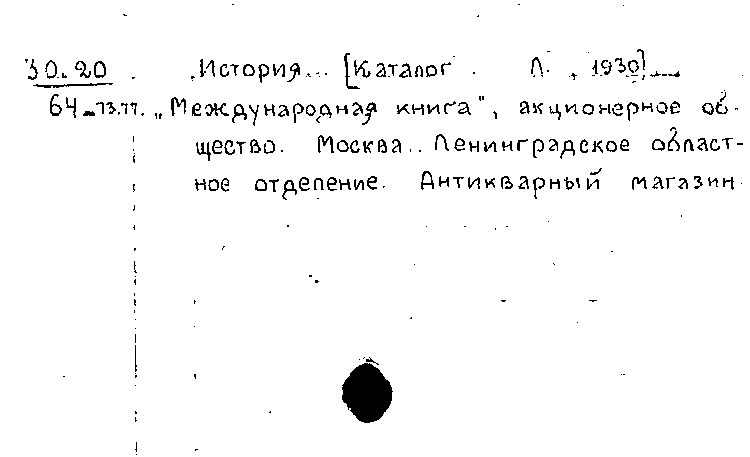 30.20 История... [Каталог. Л., 1930]....
64-73.77. „Международная книга", акционерное об-
щество. Москва. Ленинградское област-
ное отделение. Антикварный магазин.